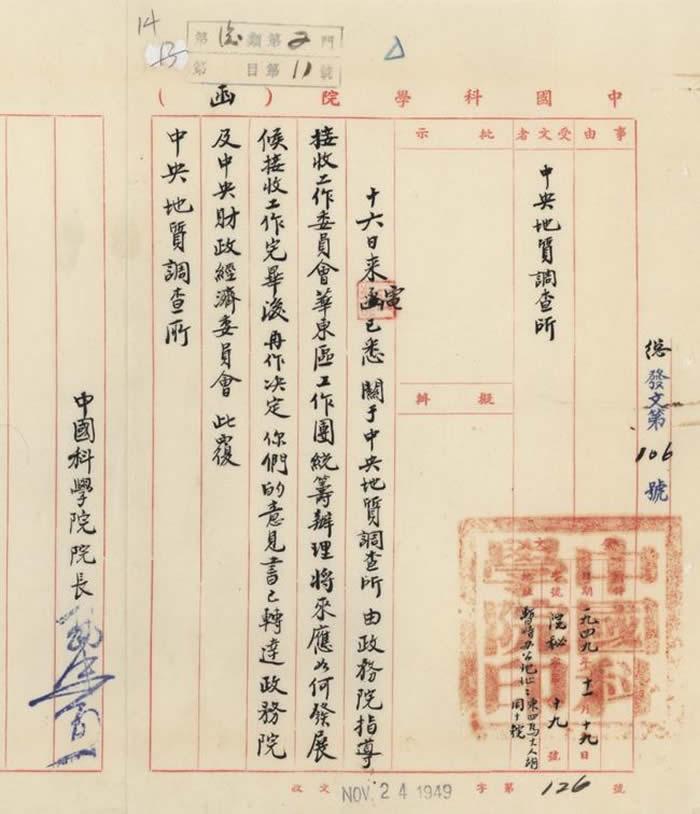 14
第 類第2門
第 目第11號
中國科學院(函)
總發文第106號
事由
受文者
中央地質調查所
批示
擬辦
日期 一九四九年十一月十九日
院秘 十九號
暫時办公地址:東四馬大人胡
同十號
中國科學院印
十六日來電已悉 關于中央地質調查所 由政務院指導
接收工作委員會華東區工作團統籌辦理將來應如何發展
候接收工作完畢後再作决定 你們的意見書已轉達政務院
及中央財政經濟委員會 此覆
中央地質調查所
中國科學院院長
收文 NOV. 24 1949 字第126號